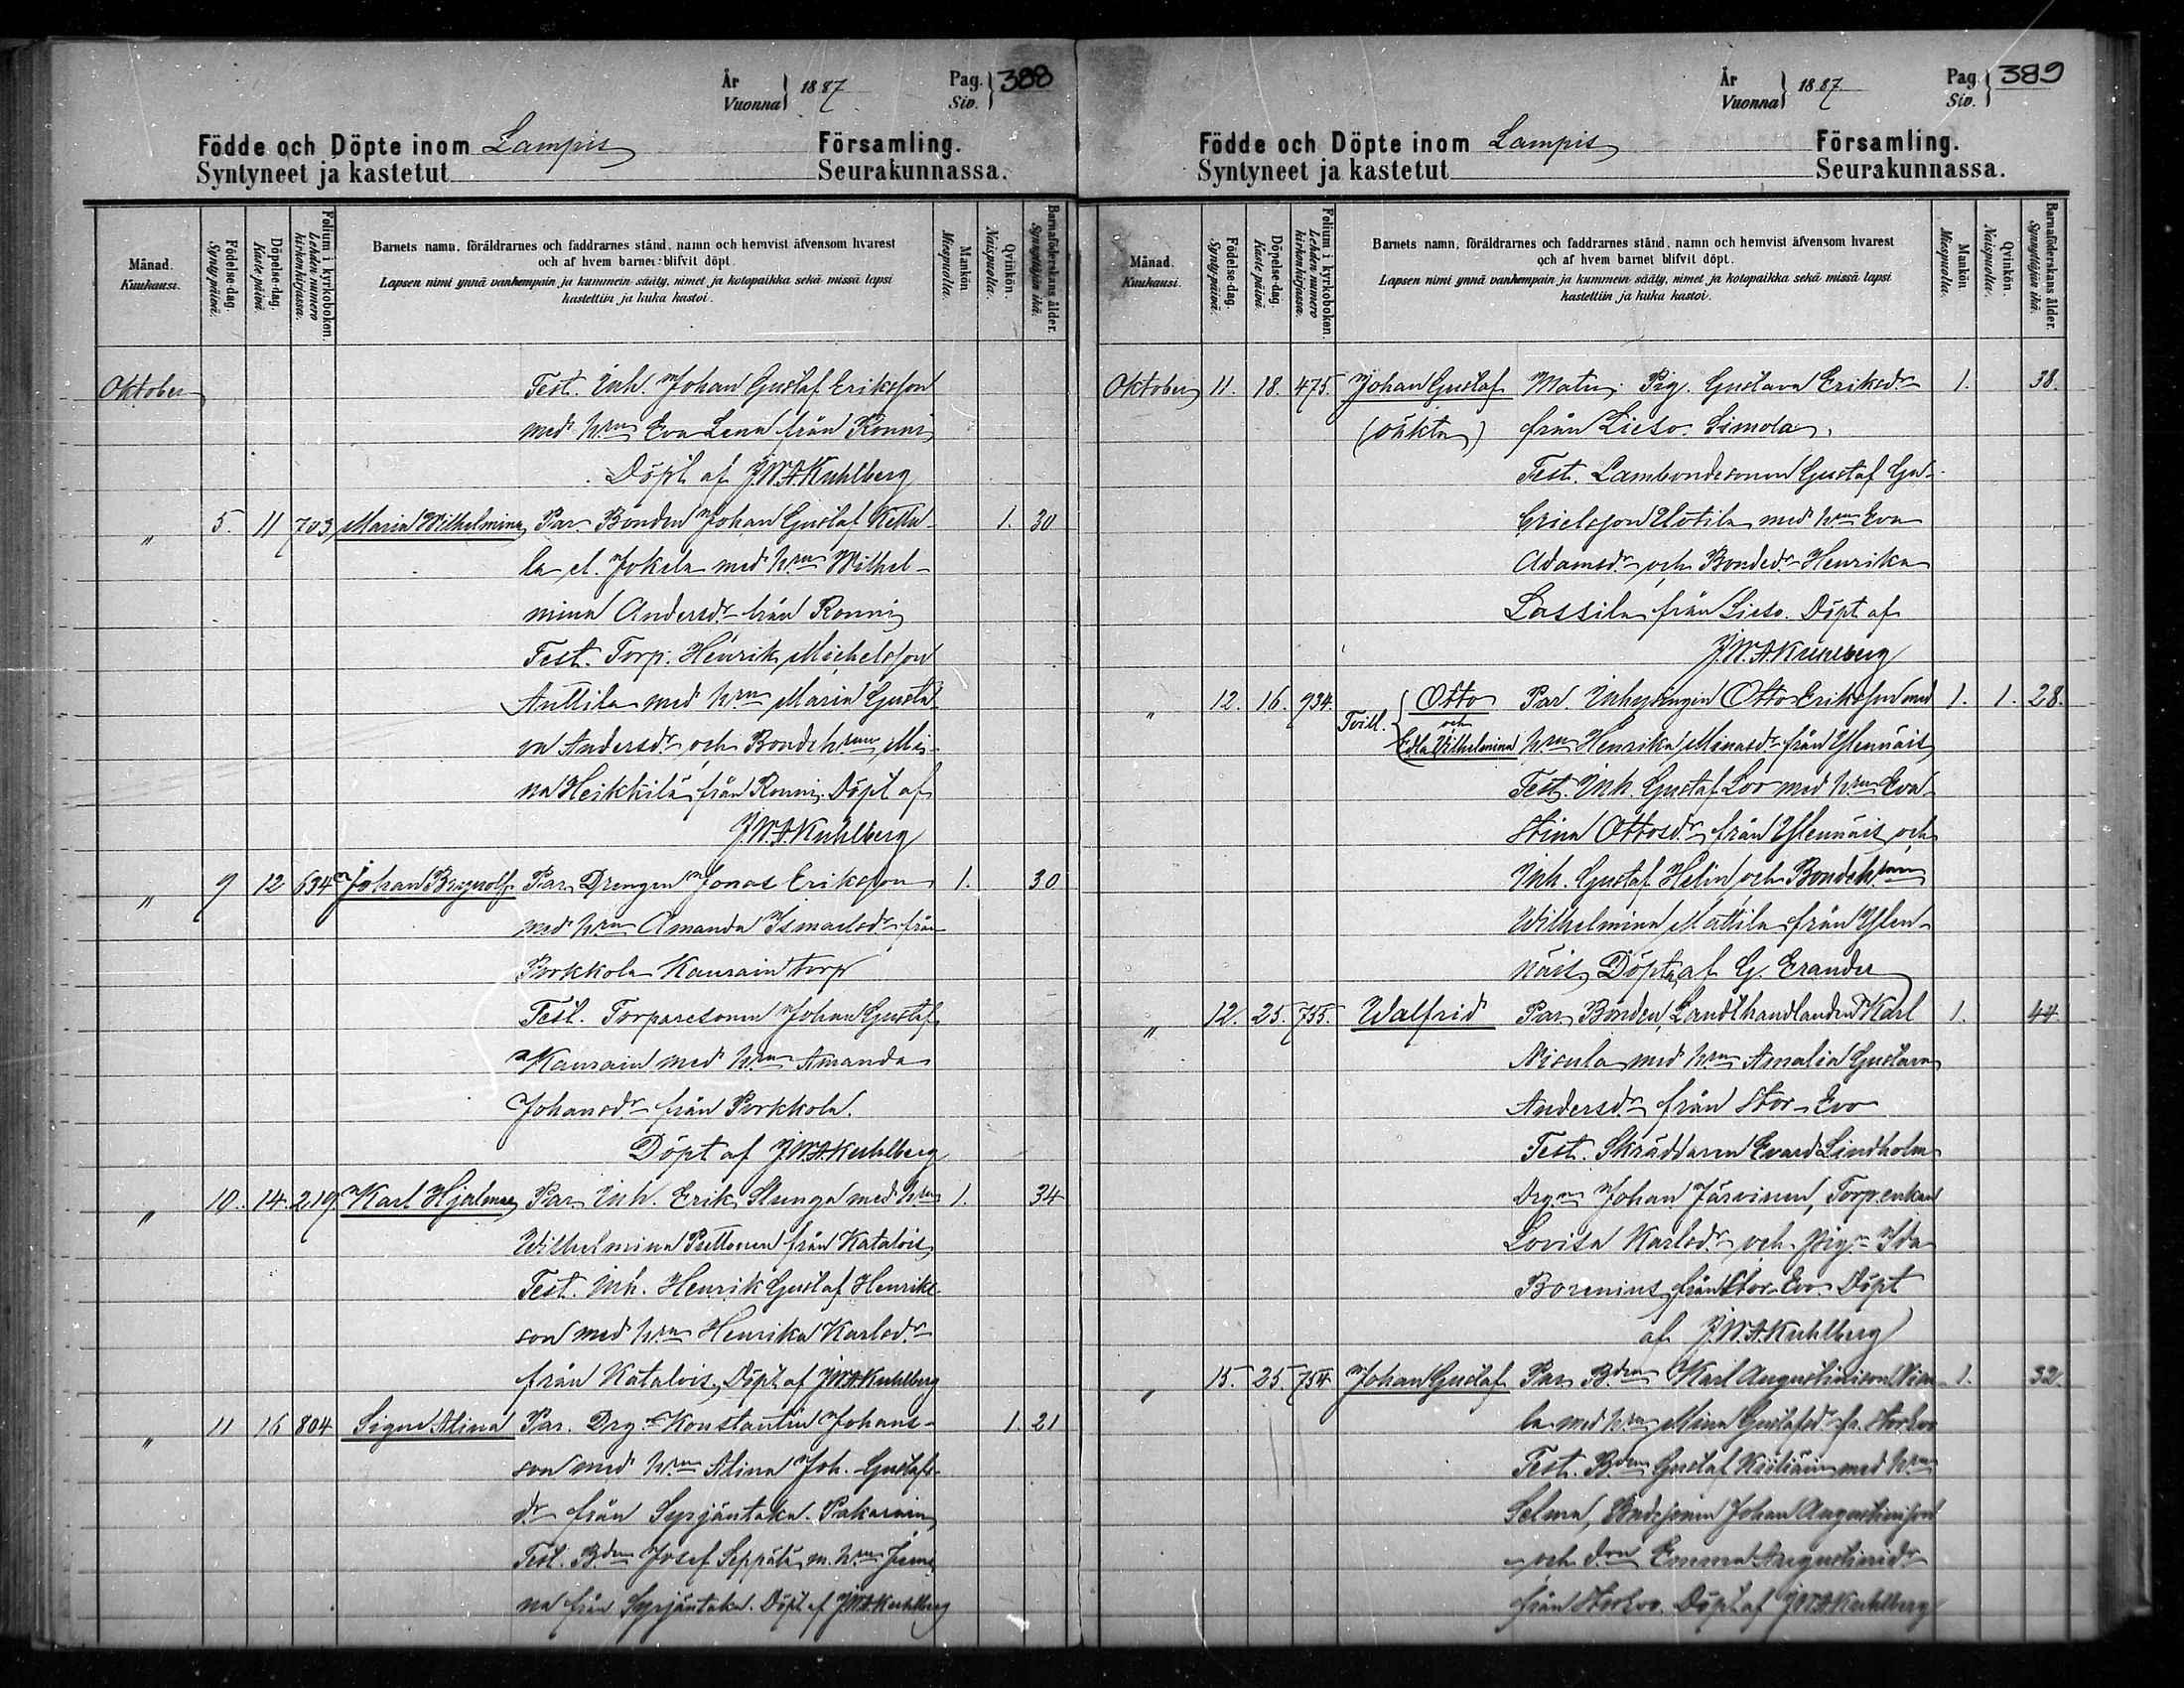 År
Vuonna
1887
Pag.
Siv.
388
Födde och Döpte inom Lampis Församling.
Syntyneet ja kastetut Seurakunnassa.
Månad.
Kuukausi.
Födelse-dag.
Synty-päivä.
Döpelse-dag.
Kaste-päivä.
Folium i kyrkoboken.
Lehden numero kirkonkirjassa.
Barnets namn, föräldrarnes och faddrarnes stånd, namn och hemvist äfvensom hvarest
och af hvem barnet blifvit döpt.
Lapsen nimi ynnä vanhempain ja kummein sääty, nimet ja kotopaikka sekä missä lapsi
kastettiin ja kuka kastoi.
Mankön.
Miespuolia.
Qvinkön.
Naispuolia.
Barnaföderskans ålder.
Synnyttäjän ikä.
Oktober Test. Inh. Johan Gustaf Eriksson
med h:ru Eva Lena från Ronni
Döpt af J.W.A. Kuhlberg
" 5. 11 703 Maria Wilhelmina Par. Bonden Johan Gustaf Kettu- 1. 30
la el. Jokela med h:ru Wilhel-
mina Andersdr från Ronni
Test. Torp. Henrik Michelsson
Anttila med h:ru Maria Gusta-
va Andersdr och Bondeh:run Mi-
na Heikkilä från Ronni. Döpt af
J.W.A. Kuhlberg
" 9 12 634 Johan Brynolf Par. Drengen Jonas Eriksson 1. 30
med h:ru Amanda Ismaelsdr från
Porkkola Kaurain torp
Test. Torparesonen Johan Gustaf
Kaurain med h:ru Amanda
Johansdr från Porkkola.
Döpt af J.W.A. Kuhlberg
" 10. 14. 219. Karl Hjalmar Par. Inh. Erik Stenga med h:ru 1. 34
Wilhelmina från Katalois
Test. Inh. Henrik Gustaf Henriks-
son med h:ru Henrika Karlsdr
från Katalois. Döpt af J.W.A. Kuhlberg
" 11 16 804 Signe Alina Par. Drg. Konstantin Johans- 1. 21
son med h:ru Alina Joh. Gustafs-
dr från Syrjäntaka. Pakarain
Test. Bden Josef Seppälä m. h:ru
na från Syrjäntaka. Döpt af J.W.A. Kuhlberg
År
Vuonna
1887
Pag.
Siv.
389
Födde och Döpte inom Lampis Församling.
Syntyneet ja kastetut Seurakunnassa.
Månad.
Kuukausi.
Födelse-dag.
Synty-päivä.
Döpelse-dag.
Kaste-päivä.
Folium i kyrkoboken.
Lehden numero kirkonkirjassa.
Barnets namn, föräldrarnes och faddrarnes stånd, namn och hemvist äfvensom hvarest
och af hvem barnet blifvit döpt.
Lapsen nimi ynnä vanhempain ja kummein sääty, nimet ja kotopaikka sekä missä lapsi
kastettiin ja kuka kastoi.
Mankön.
Miespuolia.
Qvinkön.
Naispuolia.
Barnaföderskans ålder.
Synnyttäjän ikä.
Oktober 11. 18. 475. Johan Gustaf Mater. Pig. Gustava Eriksdr 1. 38.
(oäkta) från Lieso. Simola.
Test. Gustaf
Uotila med h:ru Eva
Adamsdr och Bondedr Henrika
Lassila från Lieso. Döpt af
J.W.A. Kuhlberg
" 12. 16. 934. Tvill. Otto Par. Inhysingen Otto Eriksson med 1. 1. 28.
och
Edla Wilhelmina h:ru Henrika från Ylennäis
Test. Inh. Gustaf Loo med h:ru Eva
Stina Ottosdr från Ylennäis och
Inh. Gustaf Helin och Bondeh:run
Wilhelmina Mattila från Ylen-
näis Döpta af G. Erander
" 12. 25. 755. Walfrid Par. Bonden, Landthandlanden Karl 1. 44
Nisula med h:ru Amalia Gustava
Andersdr från Stor-Evo
Test. Skräddaren Evard Lindholm
Drgn Johan Järvinen, Torp.enkan
Lovisa Karlsdr och Pign Ida
Borenius från Stor-Evo. Döpt
af J.W.A. Kuhlberg
" 15. 25. 754. Johan Gustaf Par. Bden Karl Augustinson 1. 32.
la med h:ru Mina Gustafsdr fr. Storevo
Test. Bden Gustaf med h:ru
Selma, Bndesonen Johan Augustinson
och dren Emma Augustinsdr
från Storevo. Döpt af J.W.A. Kuhlberg